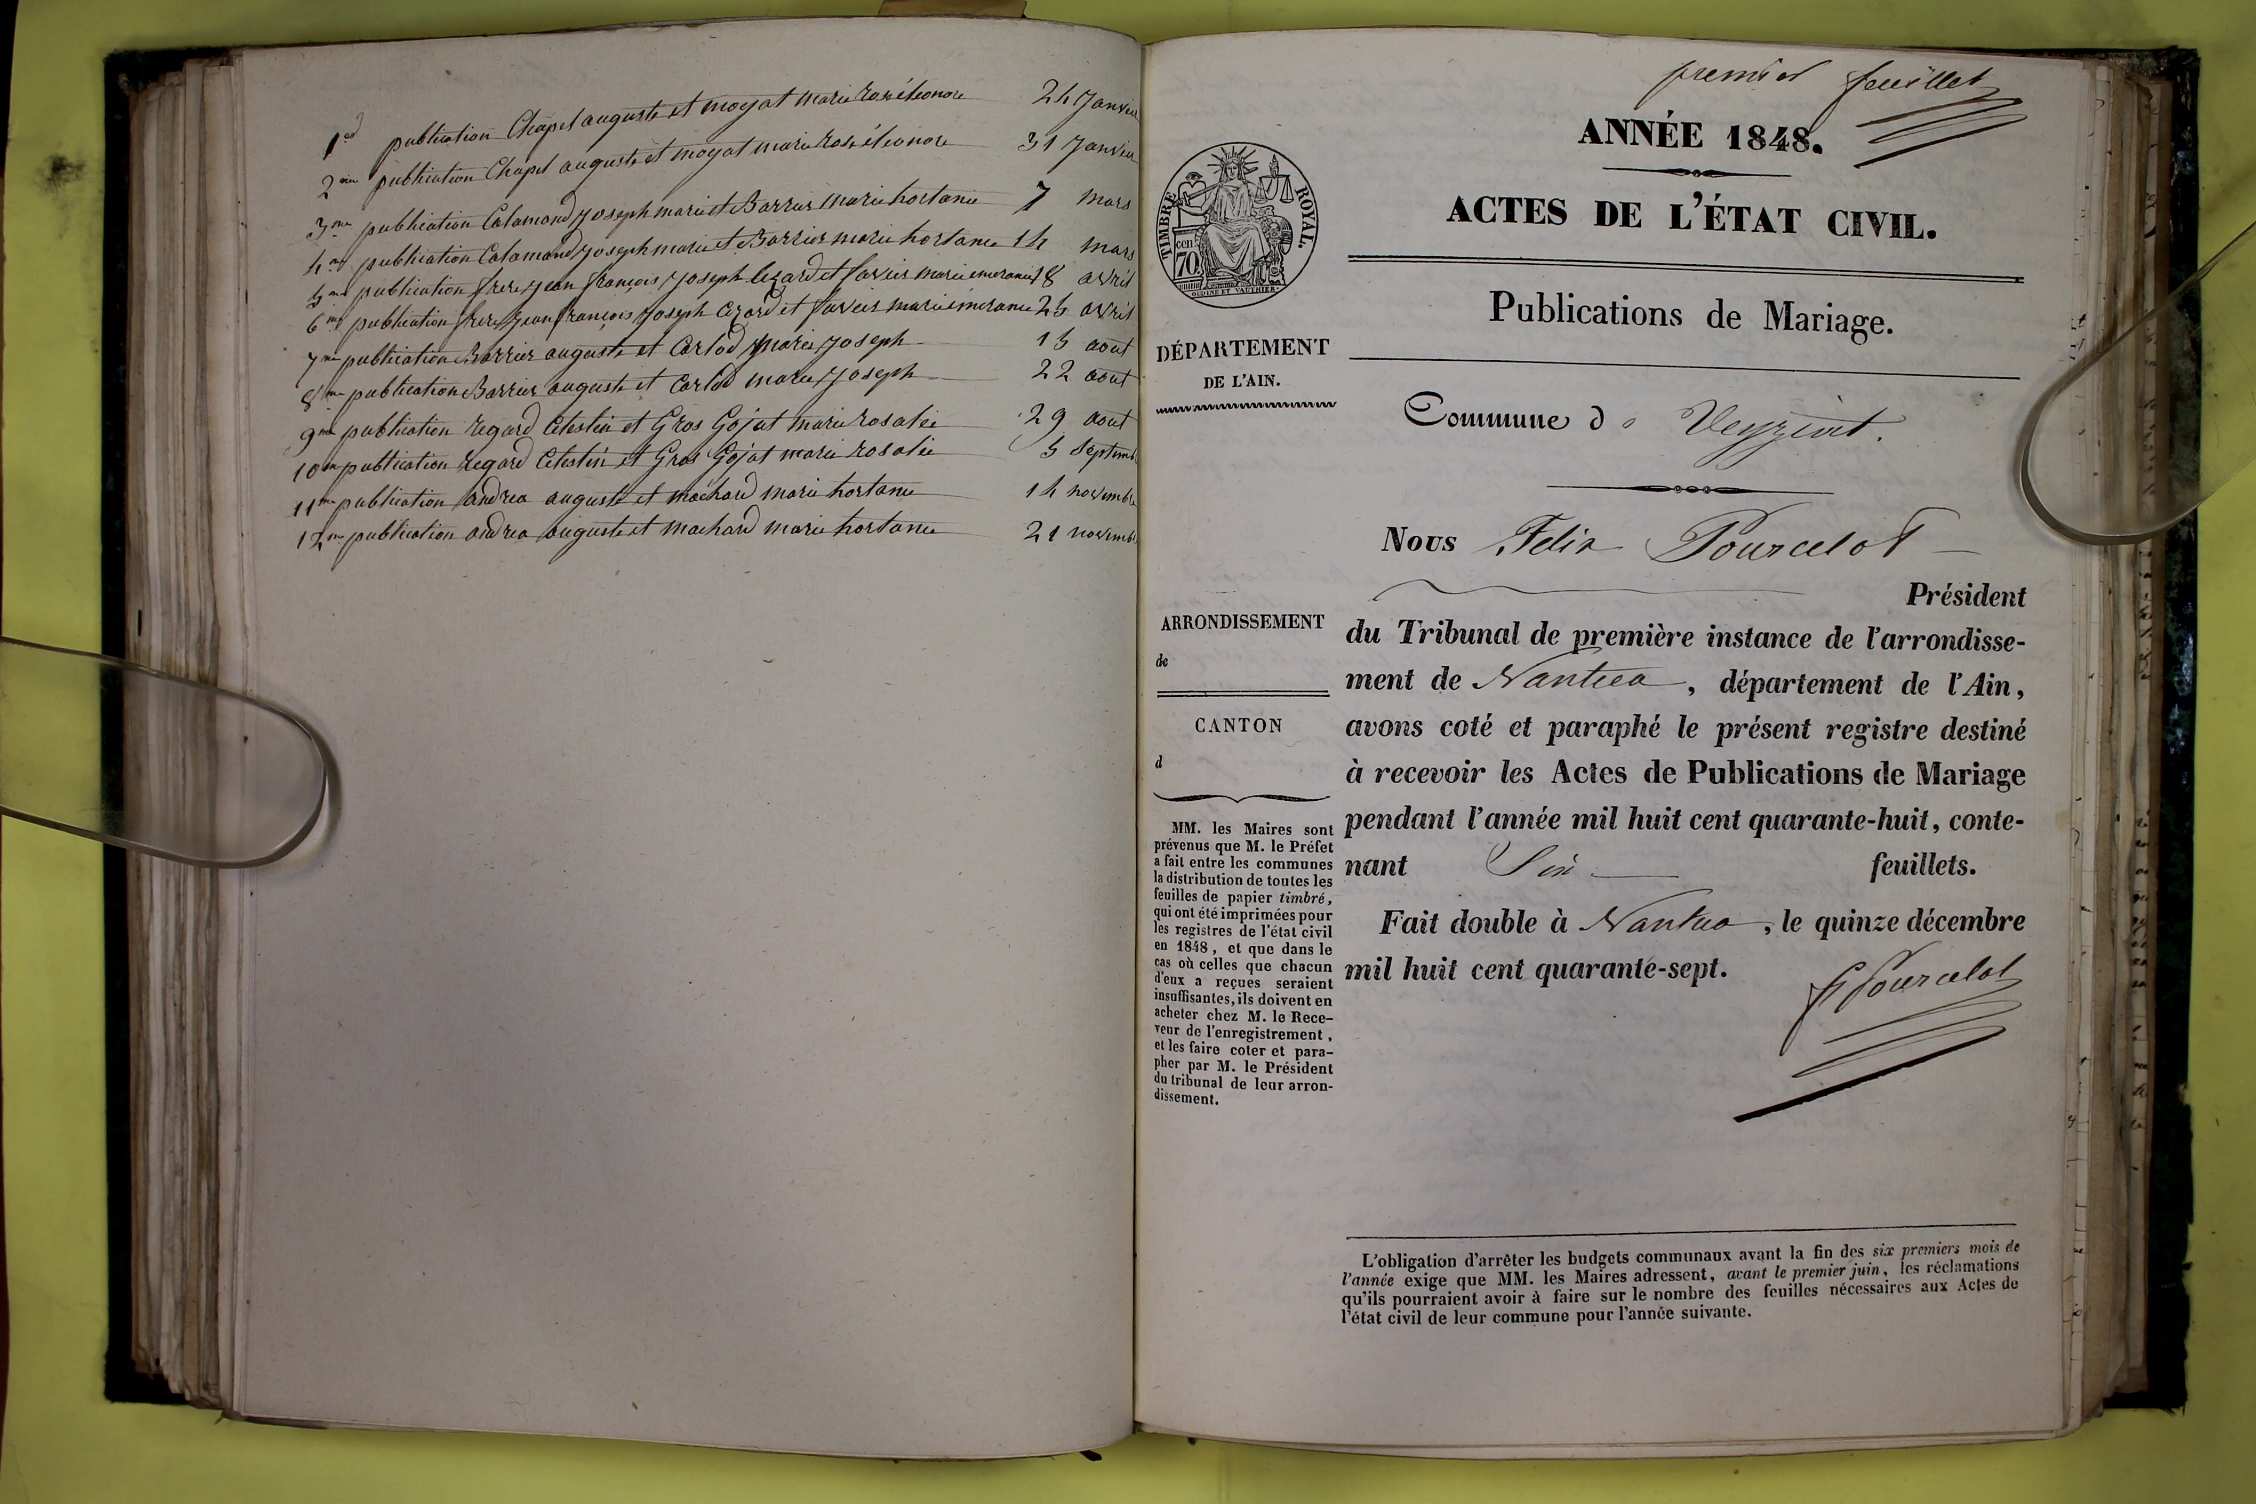 1er publication Chapel auguste et moyat marie rose éléonore 24 Janvier
2me publication Chapel auguste et moyat marie rose éléonore 31 Janvier
3me publication Calamand Joseph marie et Barrier marie hortanie 7 mars
4me publication Calamand Joseph marie et Barrier marie hortanie 14 mars
5me publication frere Jean françois Joseph et favier marie 18 avril
6me publication frere Jean françois Joseph et favier marie 25 avril
7me publication Barrier auguste et Carlod marie Joseph 15 aout
8me publication Barrier auguste et Carlod marie Joseph 22 aout
9me publication regard Celestin et Gros Gojat marie rosalie 29 aout
10me publication regard Celestin et Gros Gojat marie rosalie 5 Septemb
11me publication andrea auguste et machard marie hortanie 14 novembre
12me publication andrea auguste et machard marie hortanie 21 novemb
premier feuillet
ANNÉE 1848.
ACTES DE L'ÉTAT CIVIL.
Publications de Mariage.
TIMBRE ROYAL.
cen
70
OUDINÉ ET VAUTHIER
DÉPARTEMENT
DE L'AIN.
ARRONDISSEMENT
de
CANTON
d
MM. les Maires sont
prévenus que M. le Préfet
a fait entre les communes
la distribution de toutes les
feuilles de papier timbré,
qui ont été imprimées pour
les registres de l'état civil
en 1848, et que dans le
cas où celles que chacun
d'eux a reçues seraient
insuffisantes, ils doivent en
acheter chez M. le Rece-
veur de l'enregistrement,
et les faire coter et para-
pher par M. le Président
du tribunal de leur arron-
dissement.
Commune de Veyziat.
Nous Felix Pourcelot
Président
du Tribunal de première instance de l'arrondisse-
ment de Nantua, département de l'Ain,
avons coté et paraphé le présent registre destiné
à recevoir les Actes de Publications de Mariage
pendant l'année mil huit cent quarante-huit, conte-
nant Six feuillets.
Fait double à Nantua, le quinze décembre
mil huit cent quarante-sept.
F Pourcelot
L'obligation d'arrêter les budgets communaux avant la fin des six premiers mois de
l'année exige que MM. les Maires adressent, avant le premier juin, les réclamations
qu'ils pourraient avoir à faire sur le nombre des feuilles nécessaires aux Actes de
l'état civil de leur commune pour l'année suivante.